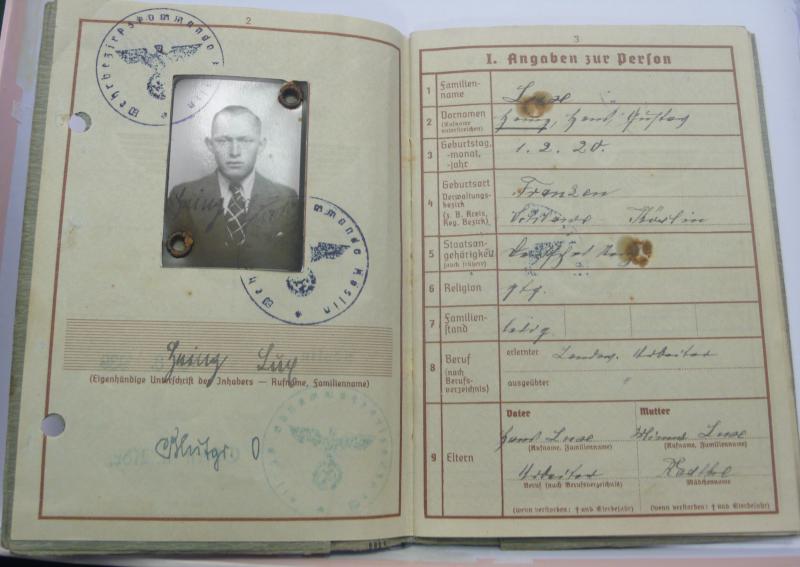 2
Wehrbezirkskommando
Wehrbezirkskommando Köslin
Heinz Lux
(Eigenhändige Unterschrift des Inhabers — Rufname, Familienname)
Blutgr. 0
3
I. Angaben zur Person
1 Familien-
name
2 Vornamen
(Rufname
unterstreichen)
Heinz, Gustav
3 Geburtstag,
-monat,
-jahr
1. 2. 20.
4 Geburtsort
Verwaltungs-
bezirk
(z. B. Kreis,
Reg. Bezirk)
Franzen
Köslin
5 Staatsan-
gehörigkeit
(auch frühere)
6 Religion
gtg.
7 Familien-
stand
ledig
8 Beruf
(nach
Berufs-
verzeichnis)
erlernter Landw. Arbeiter
ausgeübter "
9 Eltern
Vater Mutter
(Rufname, Familienname) (Rufname, Familienname)
Arbeiter Radtke
Beruf (nach Berufsverzeichnis) Mädchenname
(wenn verstorben: † und Sterbejahr) (wenn verstorben: † und Sterbejahr)